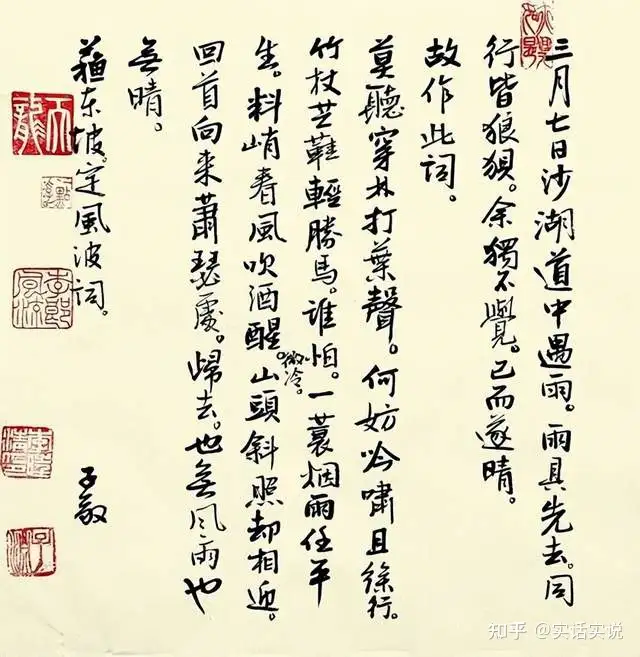 三月七日沙湖道中遇雨。雨具先去。同
行皆狼狽。余獨不覺。已而遂晴。
故作此詞。
莫聽穿林打葉聲。何妨吟嘯且徐行。
竹杖芒鞋輕勝馬。谁怕。一蓑烟雨任平
生。料峭春風吹酒醒。微冷。山頭斜照却相迎。
回首向来蕭瑟處。歸去。也無風雨也
無晴。
蘇东坡。定風波词。
子敬
知乎 @实话实说